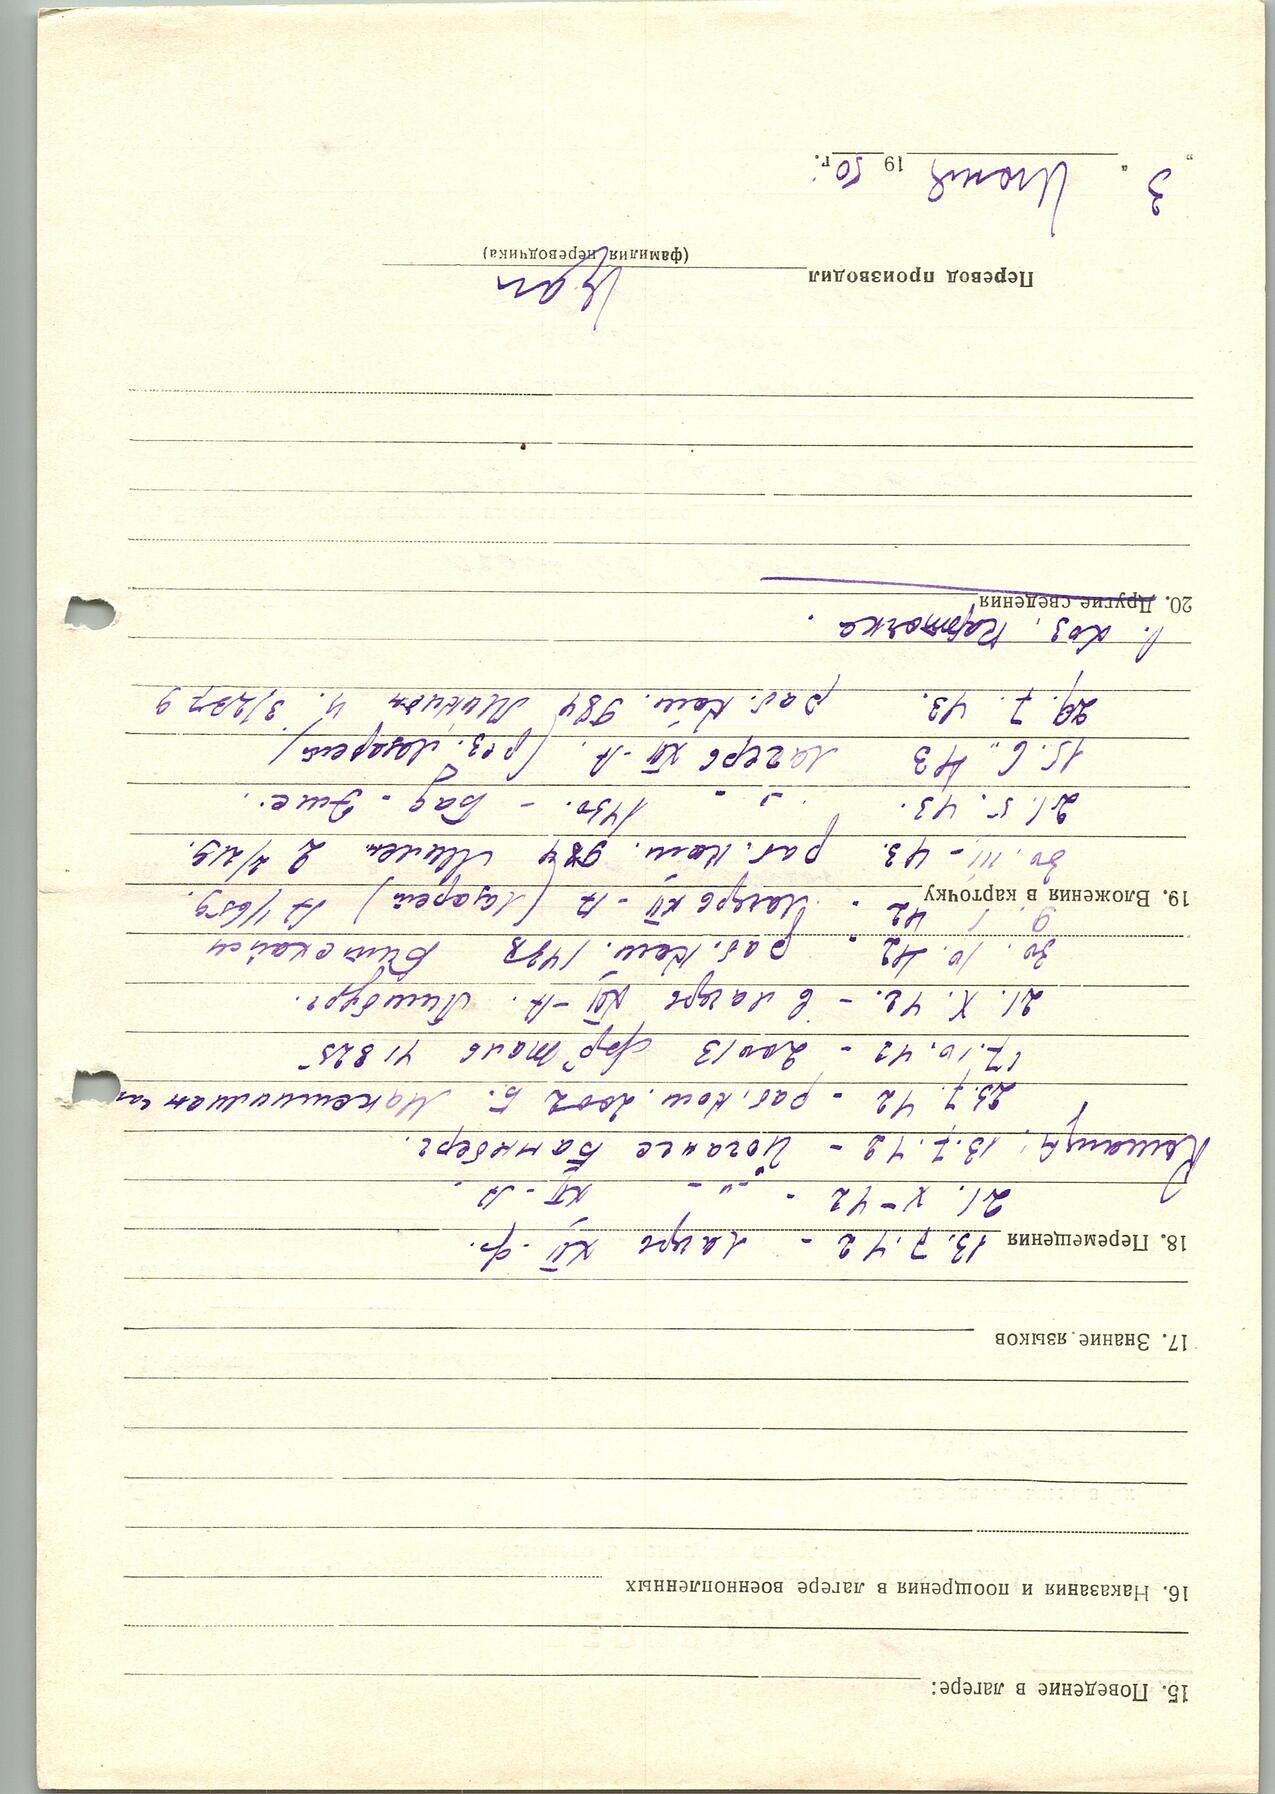 15. Поведение в лагере:
16. Наказания и поощрения в лагере военнопленных
17. Знание языков
18. Перемещения 13.7.42 - лагерь XII-ф.
21. X-42 - -"- XII-А.
13.7.42 - Иоганнес Баннберг.
23.7.42 - раб. ком. 2002 Б.
17.10.42 - 20013 41825
21. X. 42. - в лагерь XII-А. Лимбург.
30. 10. 42 - раб. ком. 1493
19. Вложения в карточку
9. 1 42 - Лагерь XII-А (лазарет) А 1/659
30. III-43. раб. ком. 984 2 2/219.
21. 5. 43. -"- 1450. - Бад-Эмс.
15. 6. 43 лагерь XII-А. (рез. лазарет)
29. 7. 43. раб. ком. 984 3/2379
1. Хоз. карточка.
20. Другие сведения
Перевод производил
(фамилия переводчика)
„3“ Июня 1950 г.